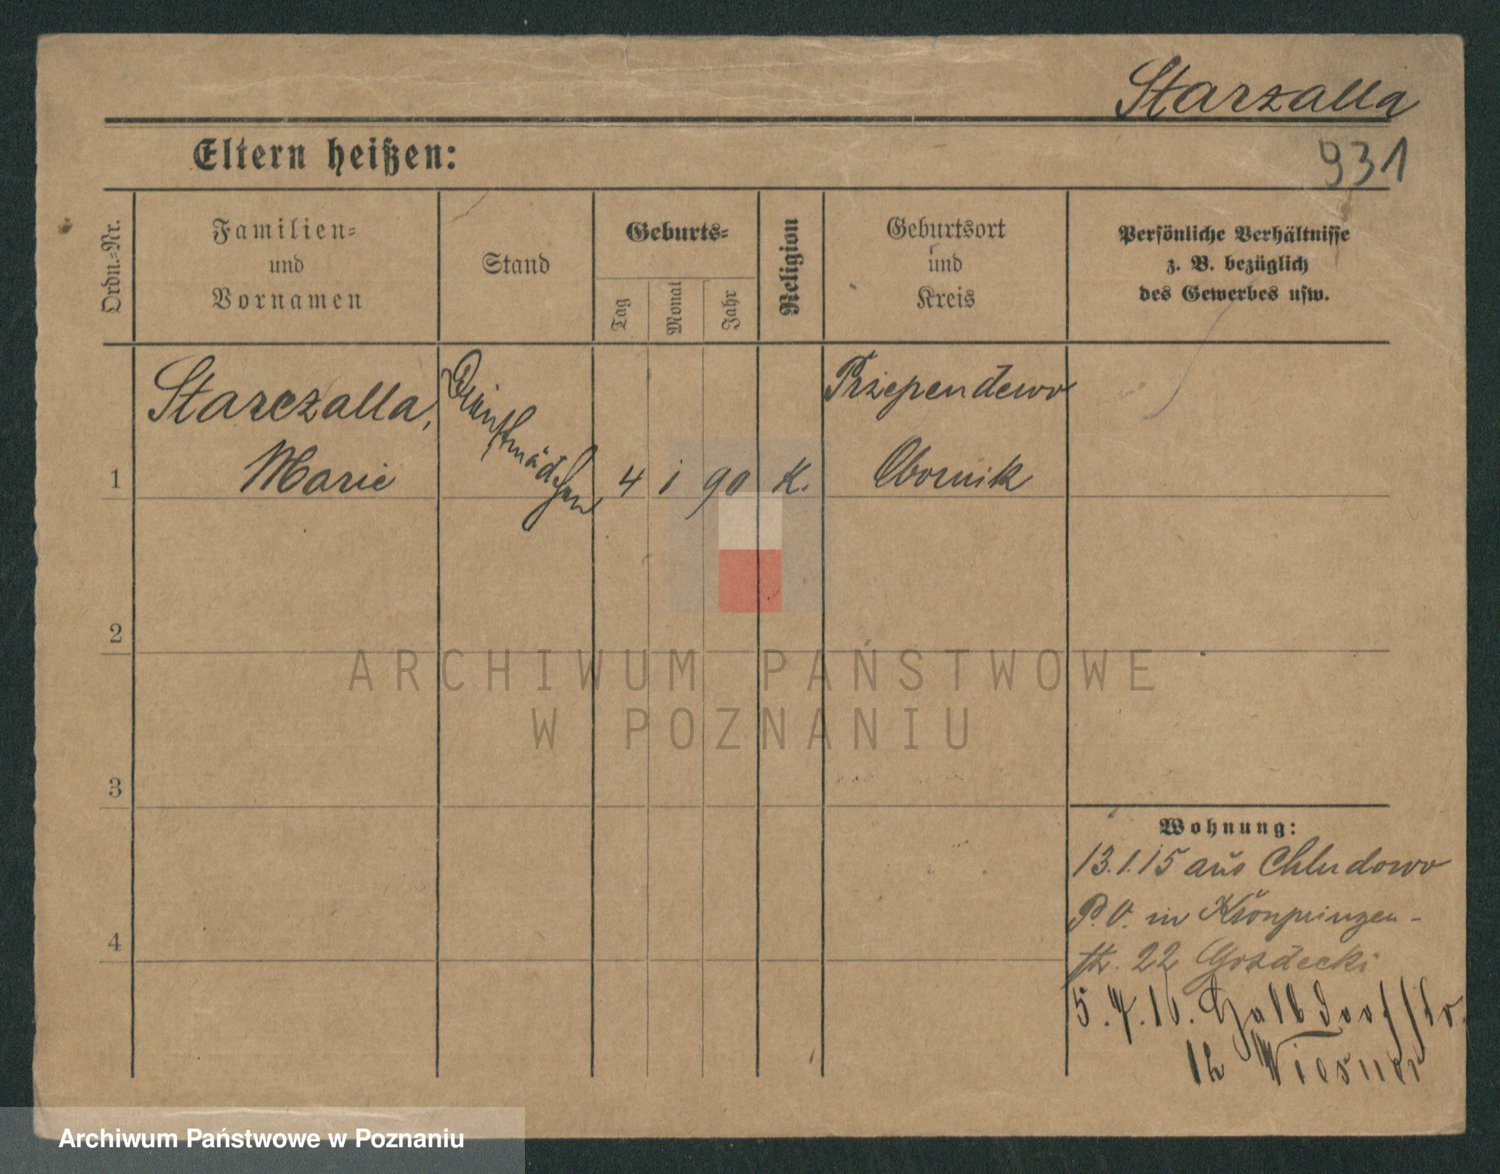 Starzalla
Eltern heißen:
931
Ordn.-Nr.
Familien-
und
Vornamen
Stand
Geburts-
Tag
Monat
Jahr
Religion
Geburtsort
und
Kreis
Persönliche Verhältnisse
z. B. bezüglich
des Gewerbes usw.
1
Starczalla,
Marie
Dienstmädchen
4
1
90
K.
Przependowo
Obornik
2
3
4
Wohnung:
13.1.15 aus Chludowo
P. O. in Kronprinzen-
str. 22 Gozdecki
5.4.16. Halbdorfstr.
12 Wiesner
ARCHIWUM PAŃSTWOWE
W POZNANIU
Archiwum Państwowe w Poznaniu